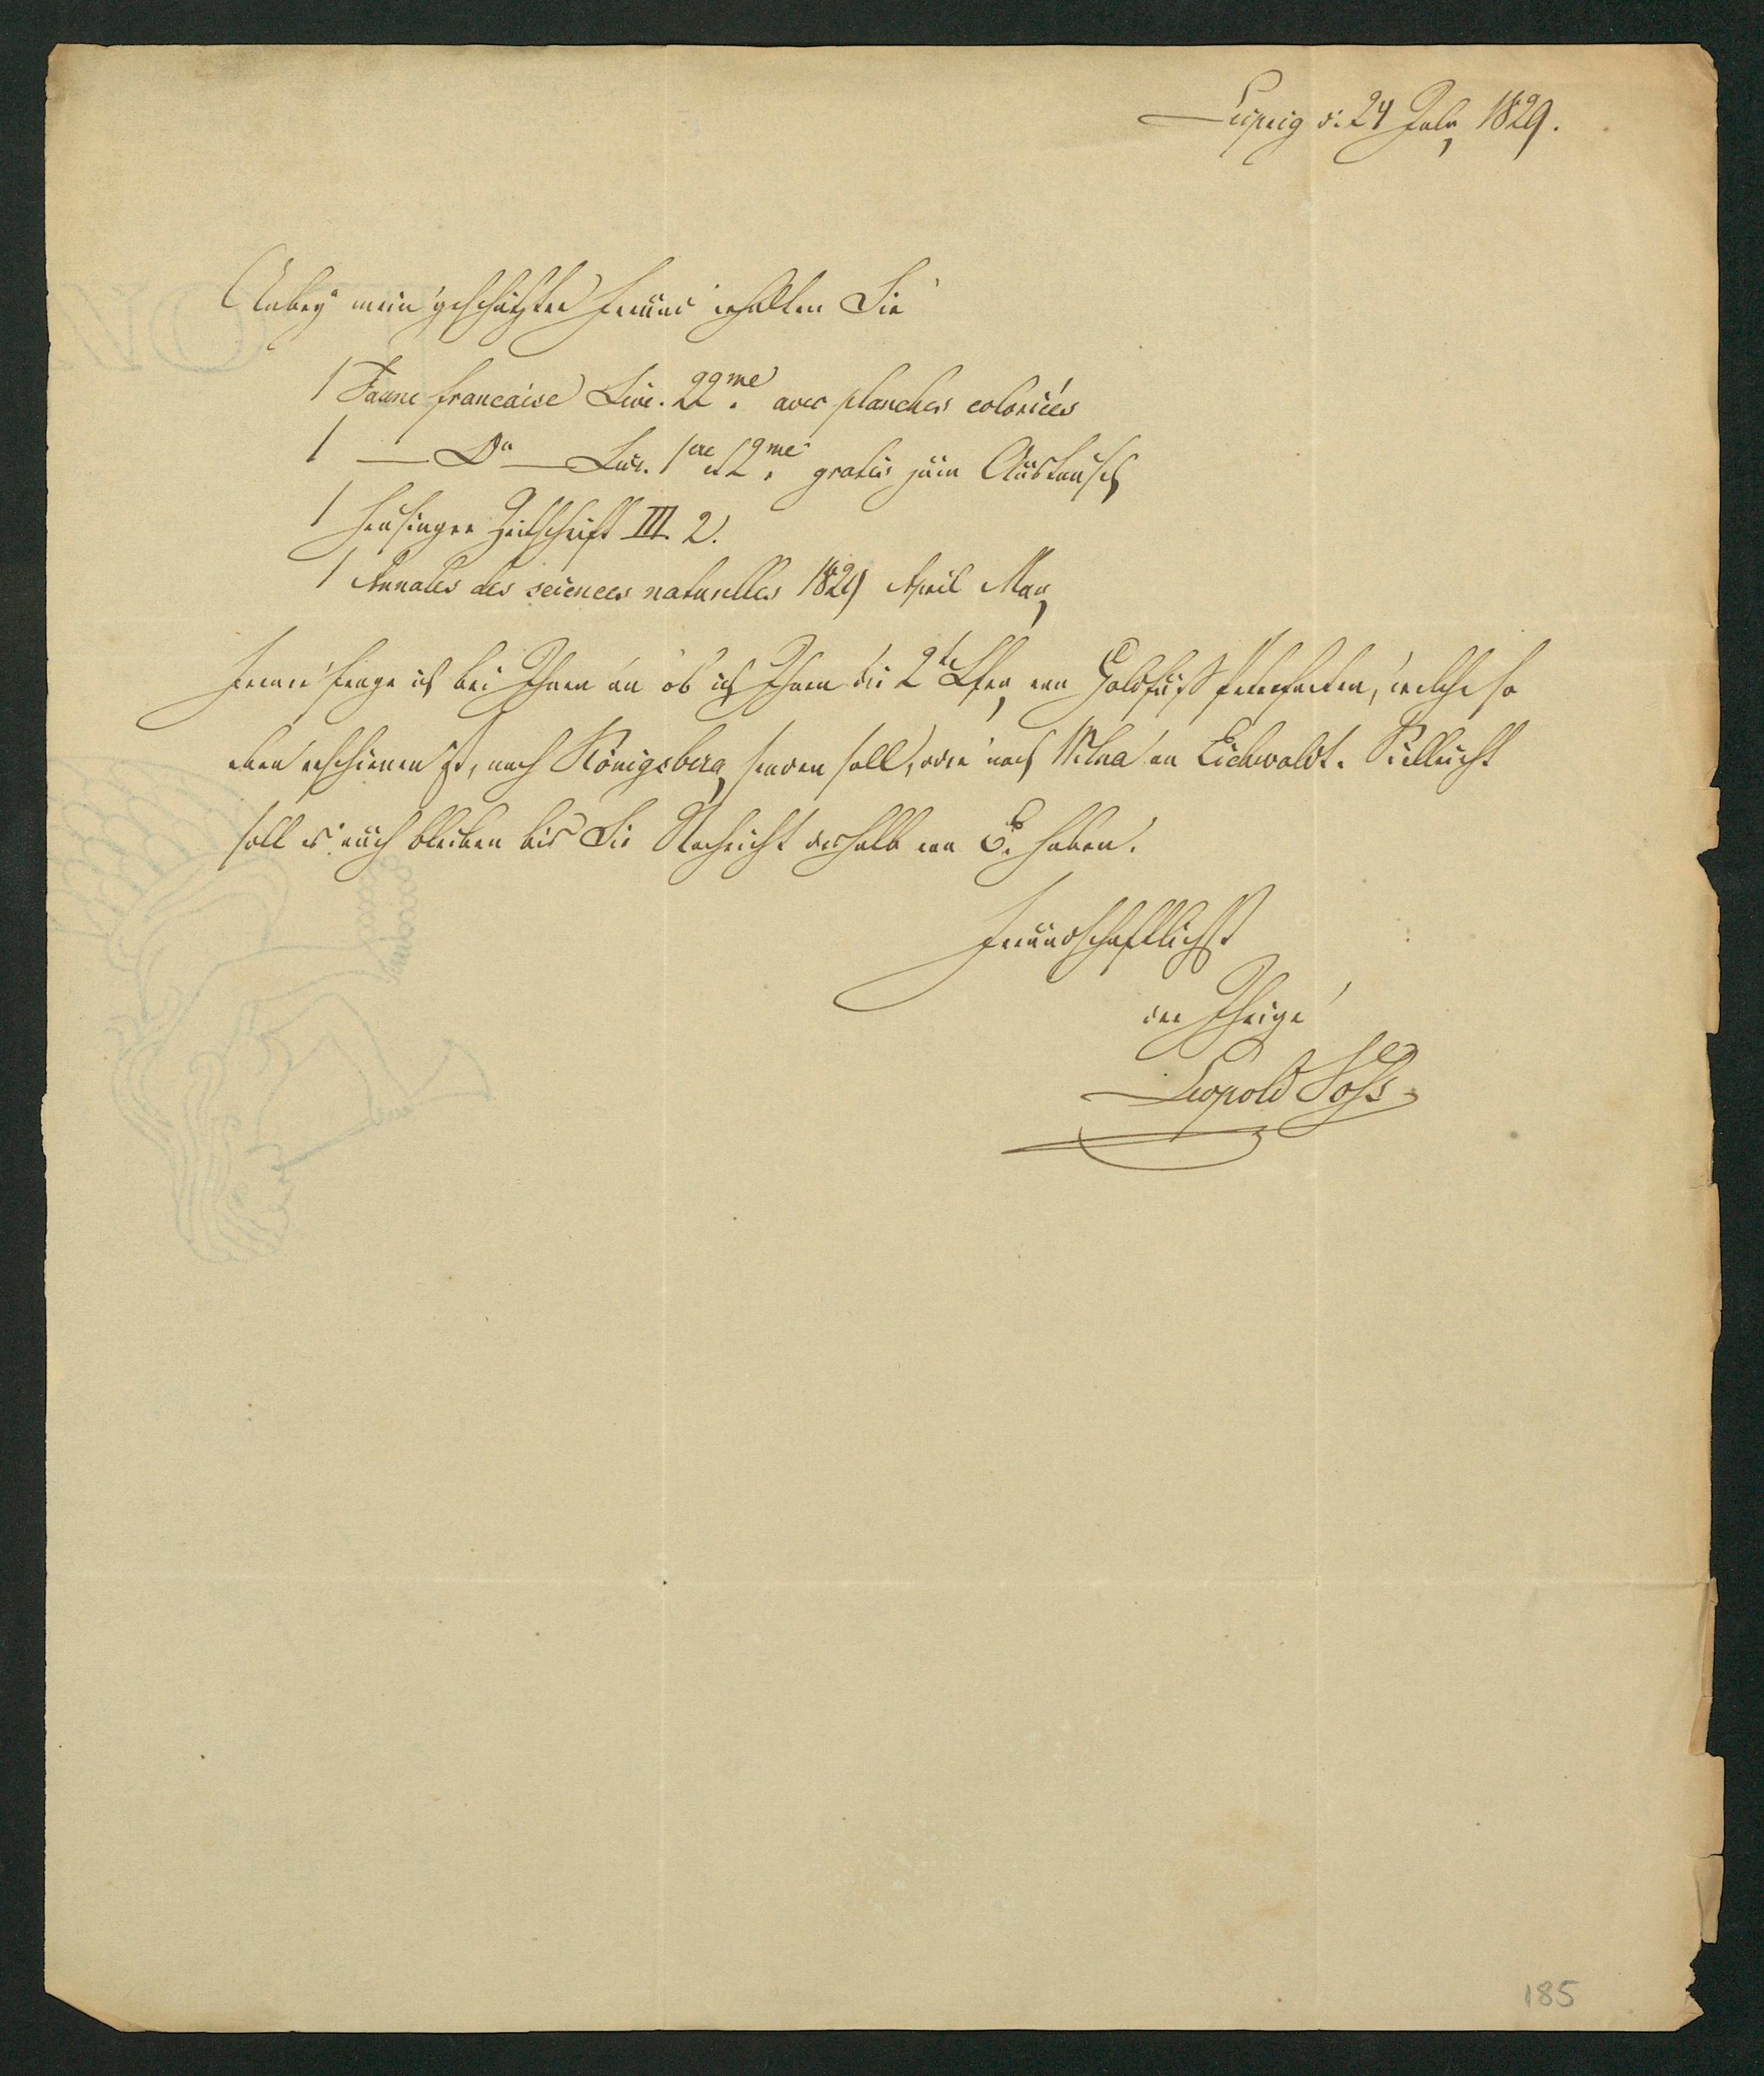 Leipzig d. 24 July 1829.
Anbey mein geschätzter Freund erhalten Sie
1 Faune francaise Livr. 22me. avec planches coloriées
1 — Do — Livr. 1ere et 2me. gratis zum Austausch
1 Heusinger Zeitschrift III. 2.
1 Annales des sciences naturelles 1829 April May
Ferner frage ich bei Ihnen an ob ich Ihnen die 2te Lfg von Goldfuß Petrefacten, welche so
eben erschienen ist, nach Königsberg senden soll, oder nach Wilna an Eichwaldt. Vielleicht
soll es auch bleiben bis Sie Nachricht deshalb von E. haben.
Freundschaftlichst
der Ihrige
Leopold Voß
185